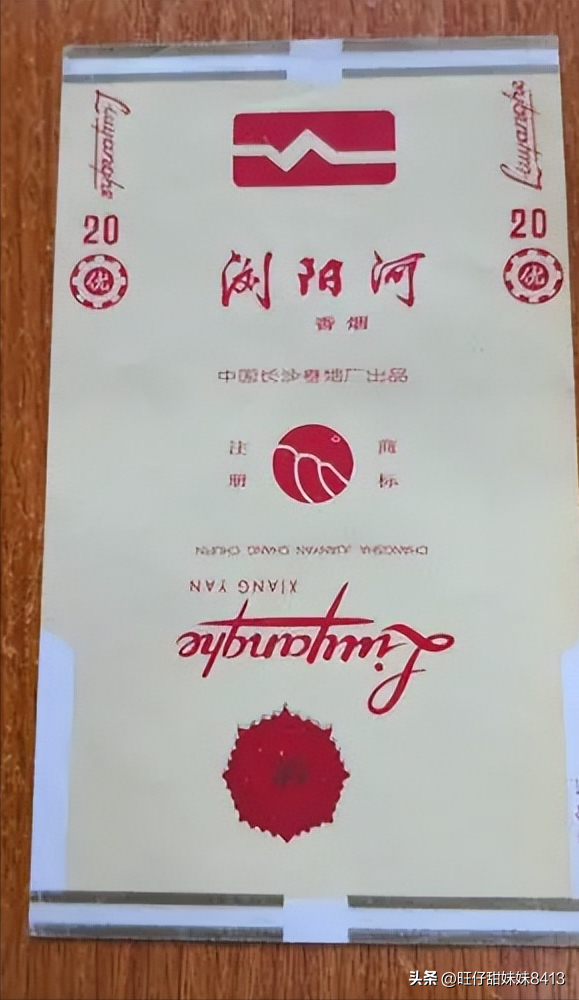 Liuyanghe
Liuyanghe
20
20
优
优
浏阳河
香烟
中国长沙卷烟厂出品
注册
商标
CHANGSHA JUANYAN CHANG CHUPIN
XIANG YAN
Liuyanghe
头条 @旺仔甜妹妹8413